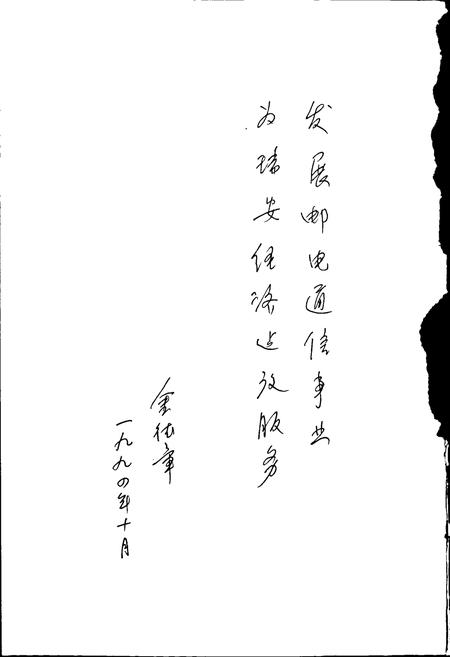 发展邮电通信事业
为瑞安经济建设服务
金德章
一九九四年十月